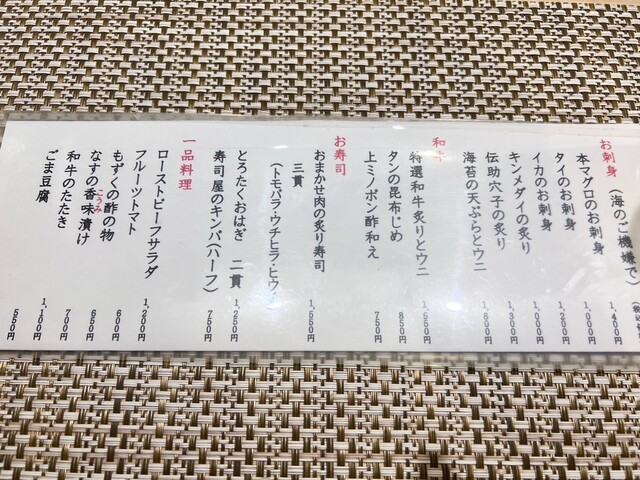 お刺身(海のご機嫌で)
本マグロのお刺身 1,400
タイのお刺身 1,000
イカのお刺身 1,000
キンメダイの炙り 1,200
伝助穴子の炙り 1,300
海苔の天ぷらとウニ 1,800
和牛
特選和牛炙りとウニ 1,550
タンの昆布じめ 850
上ミノポン酢和え 750
お寿司
おまかせ肉の炙り寿司
三貫 1,550
(トモバラ・ウチヒラ・ヒウチ)
とろたくおはぎ 二貫 1,250
寿司屋のキンパ(ハーフ) 750
一品料理
ローストビーフサラダ 1,200
フルーツトマト 600
もずく酢の物 650
なすの香味漬け 700
こうみ
和牛のたたき 1,100
ごま豆腐 550